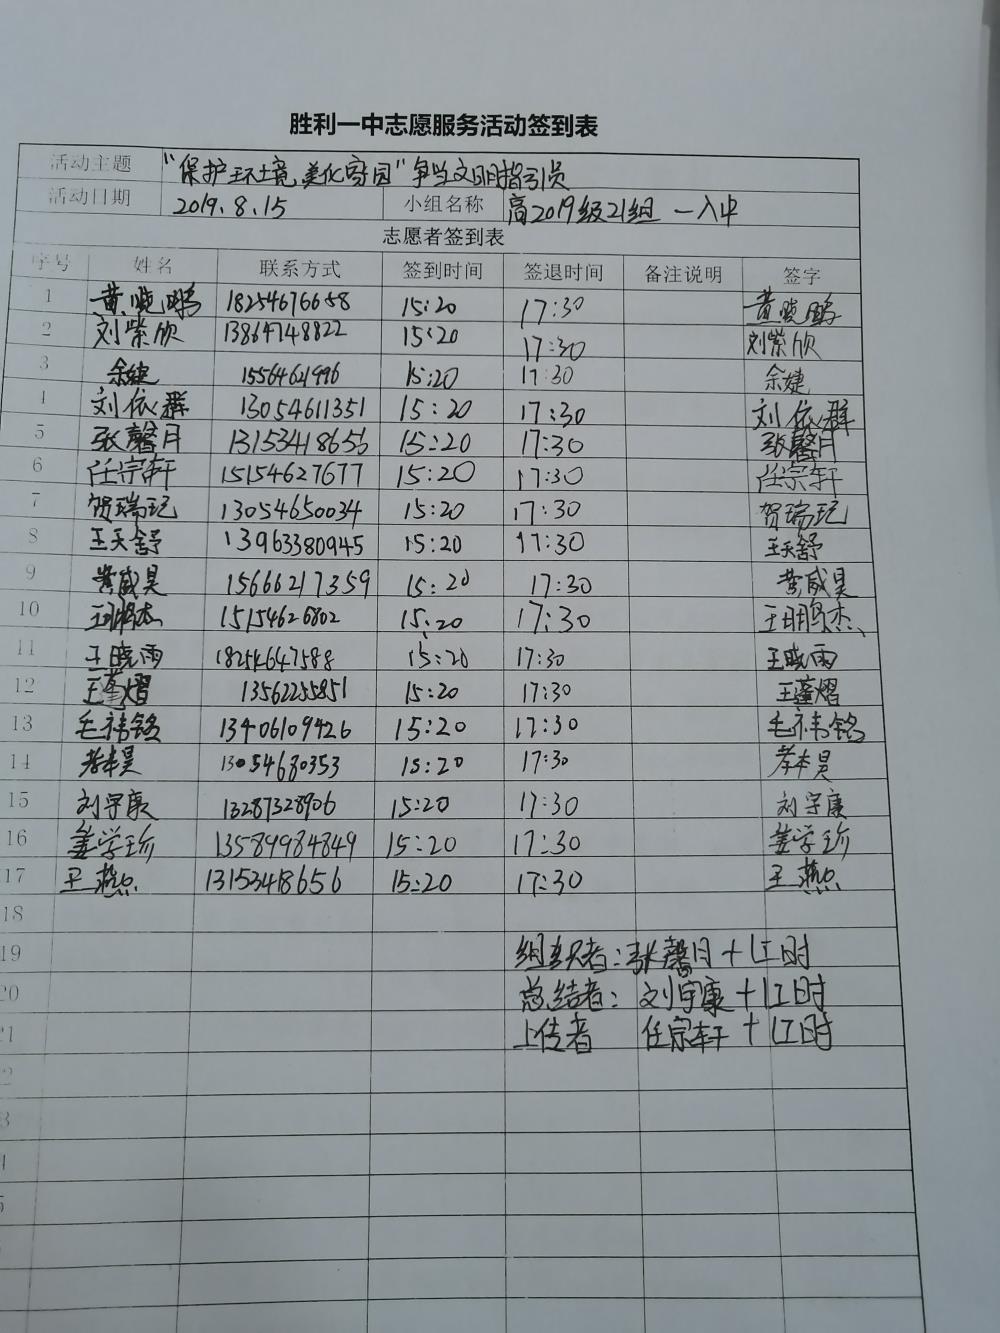 胜利一中志愿服务活动签到表
活动主题 “保护环境,美化家园”争当文明指引员
活动日期 2019.8.15 小组名称 高2019级21组 一入中
志愿者签到表
序号 姓名 联系方式 签到时间 签退时间 备注说明 签字
1 黄晓鹏 18254676658 15:20 17:30 黄晓鹏
2 刘紫欣 13864748822 15:20 17:30 刘紫欣
3 余婕 15564621996 15:20 17:30 余婕
4 刘依群 13054611351 15:20 17:30 刘依群
5 张馨月 13153418656 15:20 17:30 张馨月
6 任宗轩 15154627677 15:20 17:30 任宗轩
7 贺瑞玘 13054650034 15:20 17:30 贺瑞玘
8 王天舒 13963380945 15:20 17:30 王天舒
9 黄威昊 15666217359 15:20 17:30 黄威昊
10 王鹏杰 15154626802 15:20 17:30 王鹏杰
11 王晓雨 18254647588 15:20 17:30 王晓雨
12 王蓬熠 13562255851 15:20 17:30 王蓬熠
13 毛祎铭 13406109426 15:20 17:30 毛祎铭
14 李本昊 13054680353 15:20 17:30 李本昊
15 刘宇康 13287328906 15:20 17:30 刘宇康
16 姜学珍 13589984849 15:20 17:30 姜学珍
17 王燕 13153418656 15:20 17:30 王燕
18
19 组织者:张馨月+1工时
20 总结者:刘宇康+1工时
21 上传者 任宗轩+1工时